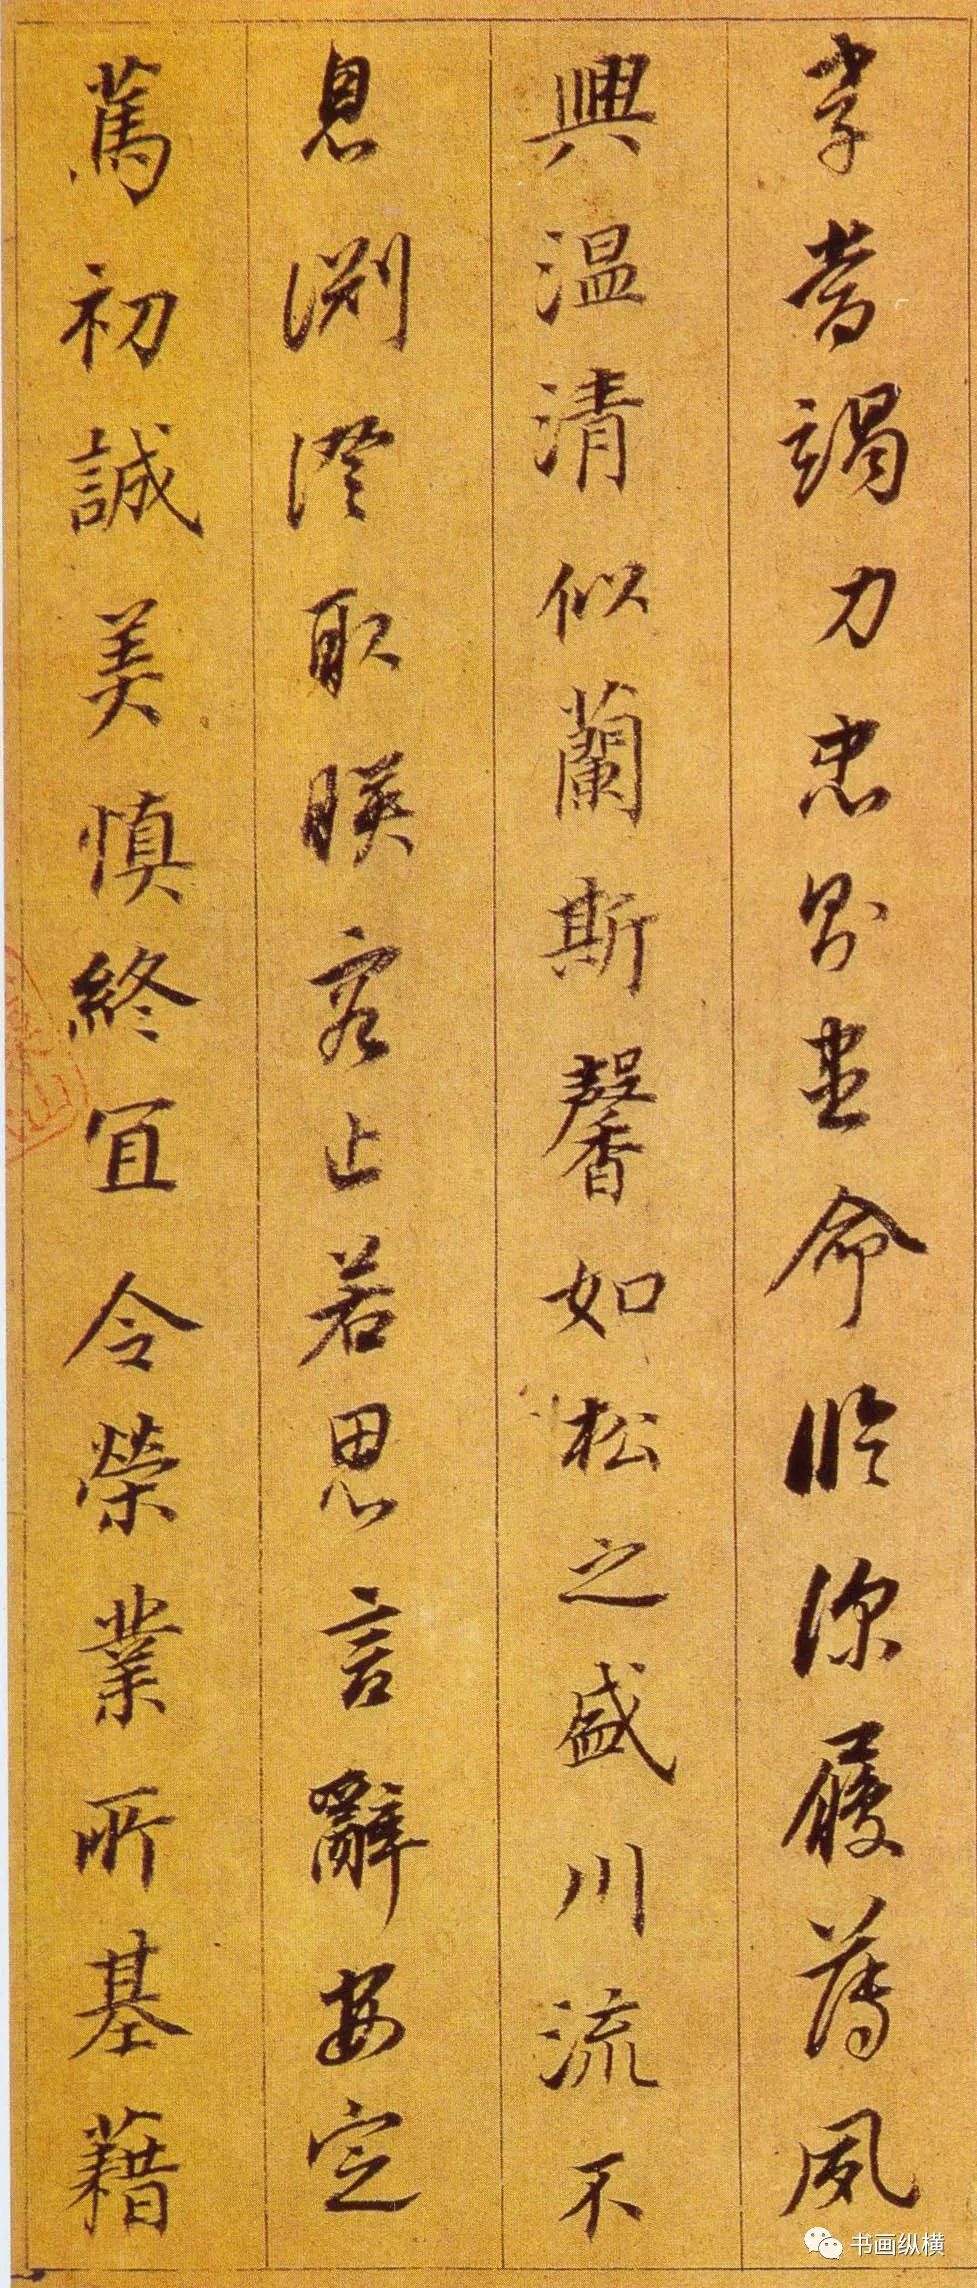 孝當竭力忠則盡命臨深履薄夙
興温清似蘭斯馨如松之盛川流不
息淵澄取暎容止若思言辭安定
篤初誠美慎終宜令榮業所基藉
书画纵横